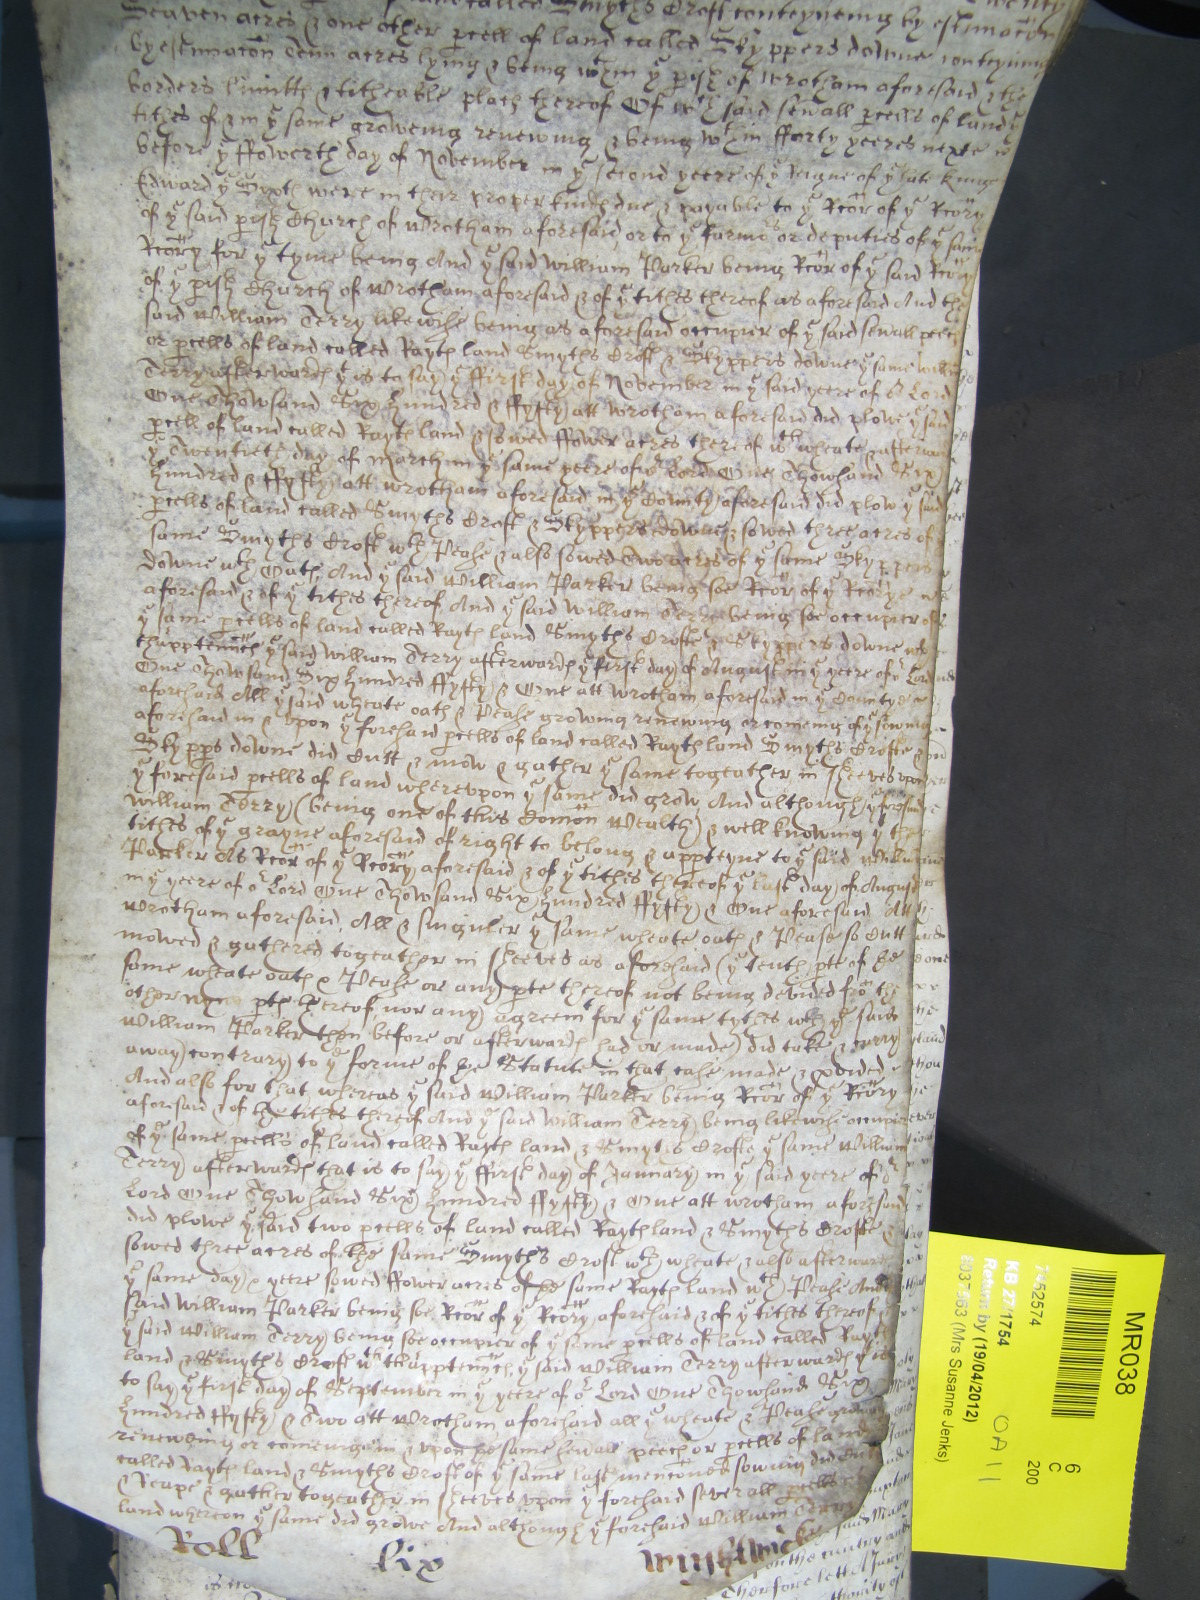 called Smyths Croft conteyneing by estimacon Twenty
Seaven acres & one other pcell of land called Skyppers downe conteyning
by estimacon Tenn acres lying & being wthin ye pish of Wrotham aforesaid & the
borders limitts & titheable places thereof Of wch said sevall pcells of land ye
tithes of & in ye same groweing renewing & being wthin fforty yeeres nexte
before ye ffowerth day of November in ye second yeere of ye Reigne of ye late Kinge
Edward ye Sixth were in their proper kinde due & payable to ye Rcor of ye Rcory
of ye said pish Church of Wrotham aforesaid or to ye farmors or deputies of ye same
Rcory for ye tyme being And ye said William Parker being Rcor of ye said Rcory
of ye pish Church of Wrotham aforesaid & of ye tithes thereof as aforesaid And the
said William Terry likewise being as aforesaid occupier of ye said sevall peeces
or pcells of land called Rayth land Smyths Croft & Skyppers downe ye same William
Terry afterwards yt is to say ye ffirst day of November in ye said yeere of or Lord
One Thowsand Six hundred & ffyfty att Wrotham aforesaid did plowe ye said
pcell of land called Rayth land & sowed ffower acres thereof wth wheate & afterwards
ye Twentieth day of March in ye same yeere of or Lord One Thowsand Six
hundred & ffyfty att Wrotham aforesaid in ye County aforesaid did plow ye said
pcells of land called Smyths Croft & Skyppers downe & sowed three acres of
same Smyths Croft wth Pease & also sowed Two acres of ye same Skyppers
downe wth Oats And ye said William Parker being soe Rcor of ye Rcorye
aforesaid & of ye tithes thereof And ye said William Terry being soe occupier of
ye same pcells of land called Rayth land Smyths Crofte & Skyppers downe wth
thapptennces ye said William Terry afterwards ye first day of August in ye yeere of or Lord
One Thowsand Six hundred ffyfty & One att Wrotham aforesaid in ye County
aforesaid All ye said wheate oats & Pease growing renewing or comeing of ye sowing
aforesaid in & upon ye foresaid pcells of land called Rayth land Smyths Crofte &
Skypps downe did Cutt & mow & gather ye same togeather in sheeves upon
ye foresaid pcells of land whereupon ye same did grow And although ye foresaid
William Terry (being one of this Comon Wealth) & well knowing ye the
tithes of ye grayne aforesaid of right to belong & appteyne to ye said William
Parker As Rcor of ye Rcory aforesaid & of ye tithes thereof ye last day of August
in ye yeere of or Lord One Thowsand Six hundred ffyfty & One aforesaid Att
Wrotham aforesaid All & singuler ye same wheate oats & Pease so Cutt
mowed & gathered togeather in sheeves as aforesaid (ye tenth pte of ye
same wheate oats & Pease or any pte thereof not being devided fro the
other nyne pts thereof nor any agreemt for ye same tythes wth ye said
William Parker then before or afterwards had or made) did take & carry
away contrary to ye forme of ye Statute in that case made & pvided
And also for that whereas ye said William Parker being Rcor of ye Rcory
aforesaid & of the tithes thereof And ye said William Terry being likewise occupier
of ye same pcells of land called Rayth land & Smyths Crofte ye same William
Terry afterwards that is to say ye ffirst day of January in ye said yeere of or
Lord One Thowsand Six hundred ffyfty & One att Wrotham aforesaid
did plowe ye said two pcells of land called Rayth land & Smyths Crofte &
sowed three acres of the same Smyths Croft wth wheate & also afterwards
ye same day & yeere sowed ffower acres of ye same Rayth land wth Pease And
said William Parker being soe Rcor of ye Rcory aforesaid & of ye tithes thereof
ye said William Terry being soe occupier of ye same pcells of land called Rayth
land & Smyths Croft wth thapptennces ye said William Terry afterwards yt is
to say ye first day of September in ye yeere of or Lord One Thowsand Six
hundred ffyfty & Two att Wrotham aforesaid all ye wheate & Pease growing
renewing or comeing in & upon ye same sevall peeces or pcells of land
called Rayth land & Smyths Croft of ye same last menconed sowing did Cutt
& Reape & gather togeather in sheeves upon ye foresaid severall pcells of
land whereon ye same did growe And although ye foresaid William Terry
Roll lix
MR038
6
C
200
1452574
KB 27/1754
Return by (19/04/2012)
(Mrs Susanne Jenks)
OA11